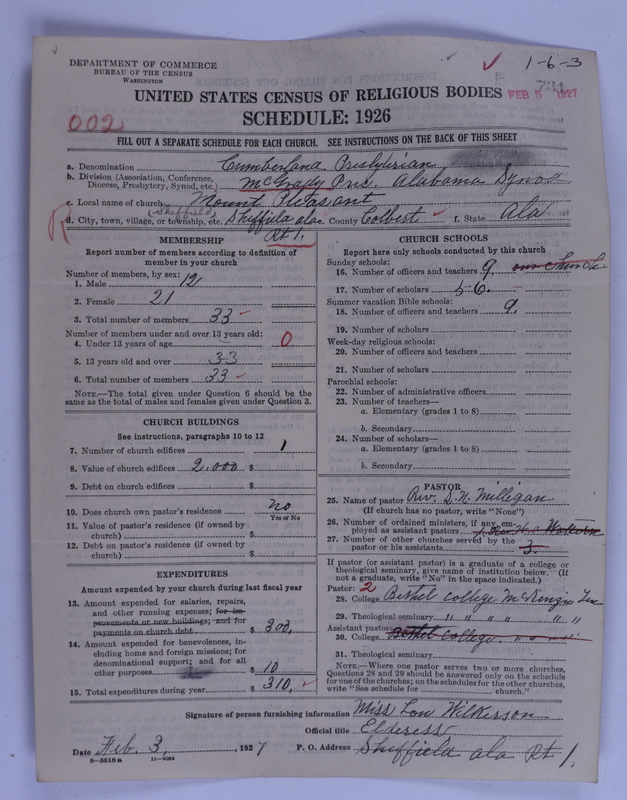 DEPARTMENT OF COMMERCE
BUREAU OF THE CENSUS
WASHINGTON
1-6-3
731
FEB 5 1927
UNITED STATES CENSUS OF RELIGIOUS BODIES
SCHEDULE: 1926
002
FILL OUT A SEPARATE SCHEDULE FOR EACH CHURCH. SEE INSTRUCTIONS ON THE BACK OF THIS SHEET
a. Denomination Cumberland Presbyterian
b. Division (Association, Conference, Diocese, Presbytery, Synod, etc.) McGrady Pres. Alabama Synod
c. Local name of church Mount Pleasant
(Sheffield)
d. City, town, village, or township, etc. Sheffield ala County Colbert f. State Ala
Rt 1.
MEMBERSHIP
Report number of members according to definition of
member in your church
Number of members, by sex:
1. Male 12
2. Female 21
3. Total number of members 33
Number of members under and over 13 years old:
4. Under 13 years of age 0
5. 13 years old and over 33
6. Total number of members 33
NOTE.—The total given under Question 6 should be the
same as the total of males and females given under Question 3.
CHURCH BUILDINGS
See instructions, paragraphs 10 to 12
7. Number of church edifices 1
8. Value of church edifices 2,000 $
9. Debt on church edifices $
10. Does church own pastor's residence No
Yes or No
11. Value of pastor's residence (if owned by
church) $
12. Debt on pastor's residence (if owned by
church) $
EXPENDITURES
Amount expended by your church during last fiscal year
13. Amount expended for salaries, repairs,
and other running expenses; for im-
provements or new buildings; and for
payments on church debt $ 300,
14. Amount expended for benevolences, in-
cluding home and foreign missions; for
denominational support; and for all
other purposes $ 10
15. Total expenditures during year $ 310,
CHURCH SCHOOLS
Report here only schools conducted by this church
Sunday schools:
16. Number of officers and teachers 9, our church
17. Number of scholars 56.
Summer vacation Bible schools:
18. Number of officers and teachers 9,
19. Number of scholars
Week-day religious schools:
20. Number of officers and teachers
21. Number of scholars
Parochial schools:
22. Number of administrative officers
23. Number of teachers—
a. Elementary (grades 1 to 8)
b. Secondary
24. Number of scholars—
a. Elementary (grades 1 to 8)
b. Secondary
PASTOR
25. Name of pastor Rev. D. N. Milligan
(If church has no pastor, write "None")
26. Number of ordained ministers, if any, em-
ployed as assistant pastors
27. Number of other churches served by the
pastor or his assistants 3.
If pastor (or assistant pastor) is a graduate of a college or
theological seminary, give name of institution below. (If
not a graduate, write "No" in the space indicated.)
Pastor: 2
28. College Bethel College McKenzie Ten
29. Theological seminary " " " " " "
Assistant pastor:
30. College Bethel College. " " " "
31. Theological seminary
NOTE.—Where one pastor serves two or more churches,
Questions 28 and 29 should be answered only on the schedule
for one of the churches; on the schedules for the other churches,
write "See schedule for church."
Signature of person furnishing information Miss Lou Wilkerson
Official title Elderess
Date Feb. 3, 1927 P. O. Address Sheffield ala Rt 1.
8-5518 a 11-9084